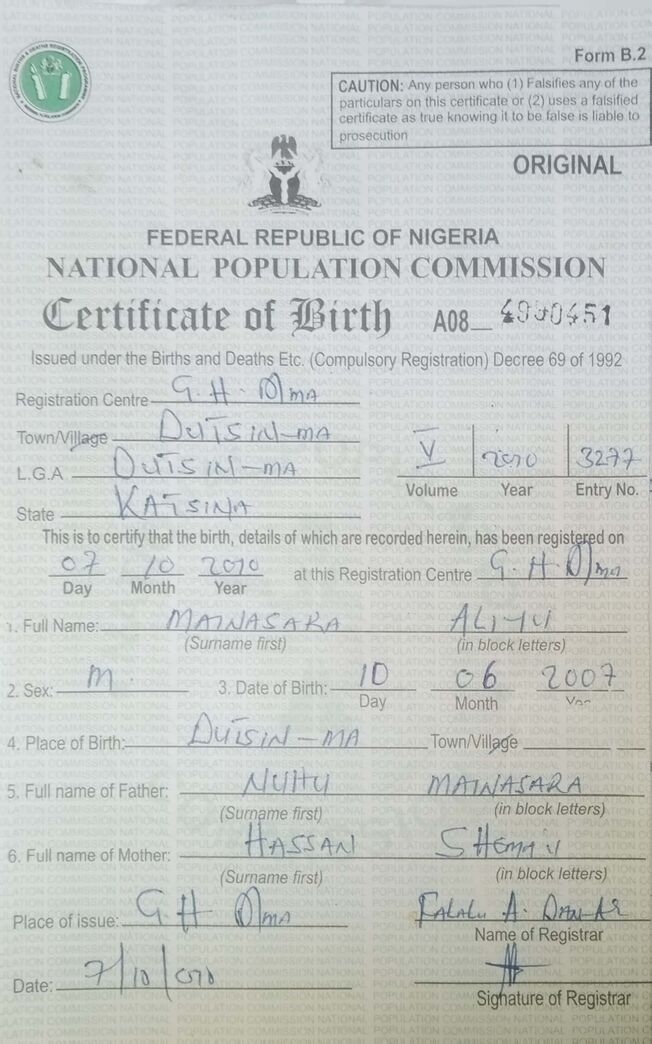 Form B.2
CAUTION: Any person who (1) Falsifies any of the
particulars on this certificate or (2) uses a falsified
certificate as true knowing it to be false is liable to
prosecution
ORIGINAL
FEDERAL REPUBLIC OF NIGERIA
NATIONAL POPULATION COMMISSION
Certificate of Birth A08
Issued under the Births and Deaths Etc. (Compulsory Registration) Decree 69 of 1992
Registration Centre G.H. D/MA
Town/Village DUTSIN-MA
L.G.A DUTSIN-MA V 2010 3277
Volume Year Entry No.
State KATSINA
This is to certify that the birth, details of which are recorded herein, has been registered on
07 10 2010 at this Registration Centre G.H. D/ma
Day Month Year
1. Full Name: MAINASARA ALIYU
(Surname first) (in block letters)
2. Sex: M. 3. Date of Birth: 10 06 2007
Day Month Year
4. Place of Birth: DUTSIN-MA Town/Village
5. Full name of Father: NUHU MAINASARA
(Surname first) (in block letters)
6. Full name of Mother: HASSAN
(Surname first) (in block letters)
Place of issue: G.H D/MA A.
Name of Registrar
Date: 7/10/010
Signature of Registrar